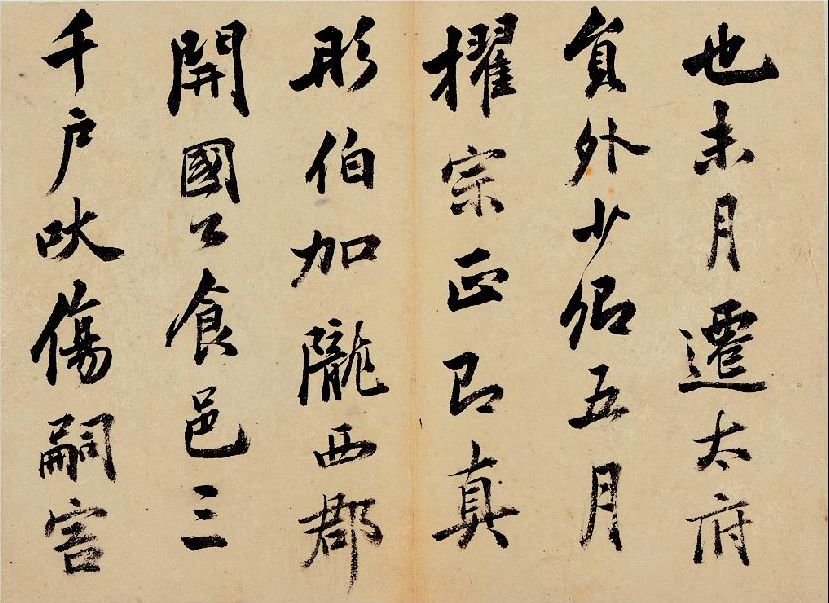 也未月遷太府
貟外少卿五月
擢宗正即真
彤伯加隴西郡
開國公食邑三
千户吠傷嗣害